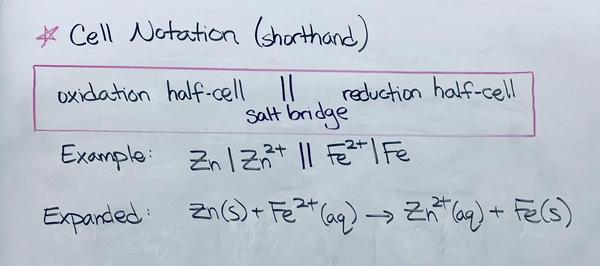 ☆ Cell Notation (shorthand)
oxidation half-cell || reduction half-cell
salt bridge
Example: Zn | Zn²⁺ || Fe²⁺ | Fe
Expanded: Zn(s) + Fe²⁺(aq) → Zn²⁺(aq) + Fe(s)